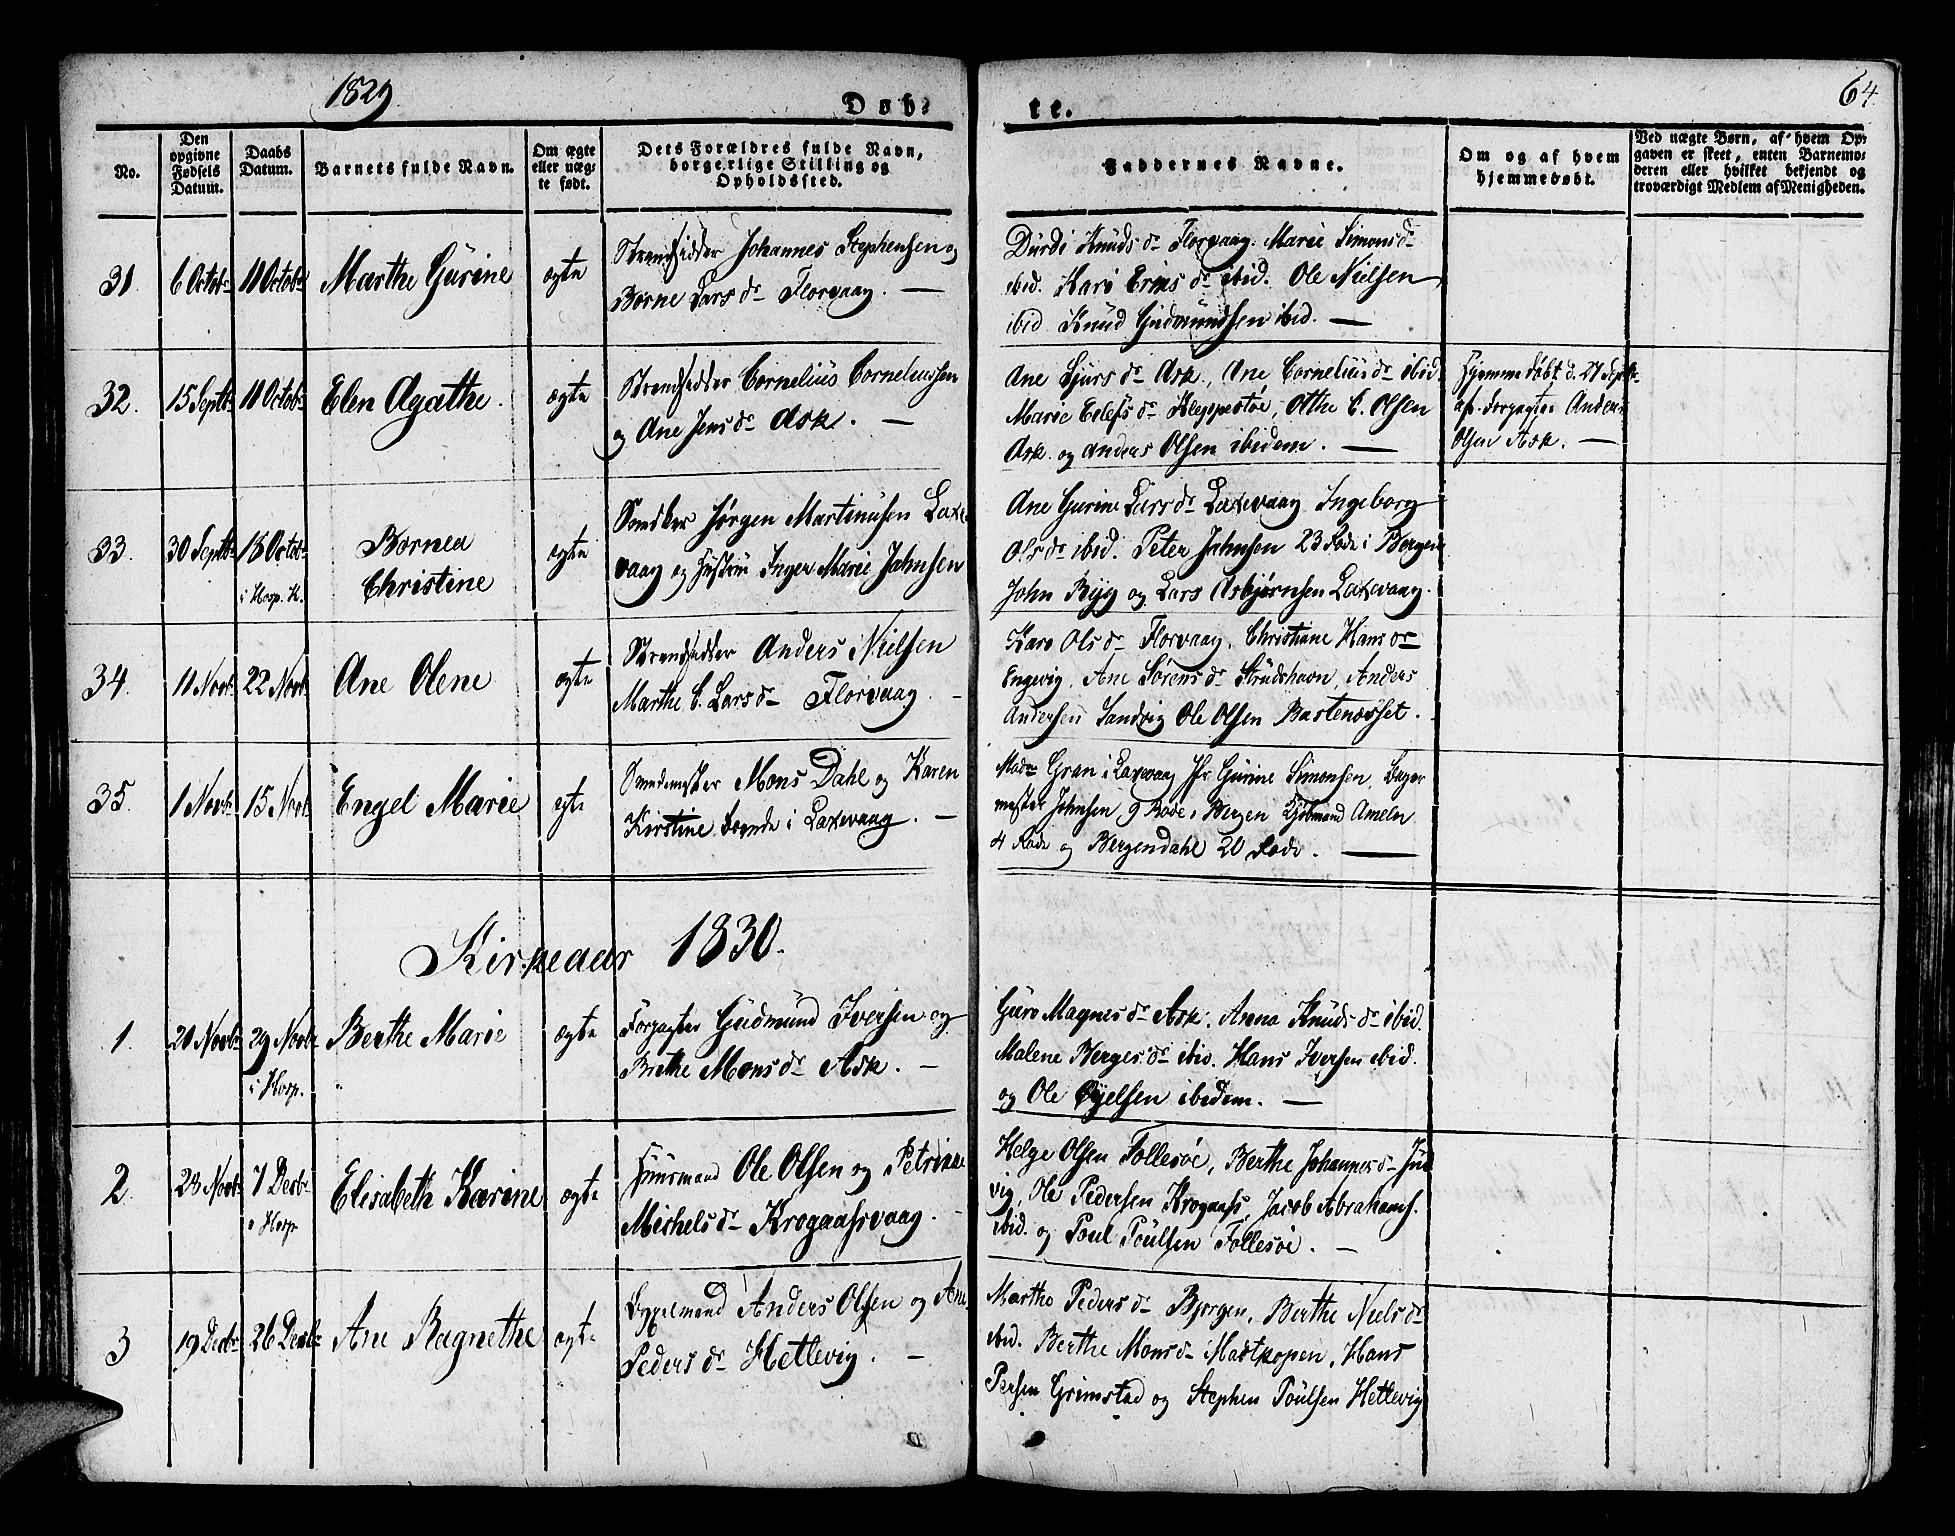 1829
64.
Døb-
te.
No.
Den opgivne Fødsels Datum.
Daabs Datum.
Barnets fulde Navn.
Om ægte eller nægte født.
Dets Forældres fulde Navn, borgerlige Stilling og Opholdssted.
Faddernes Navne.
Om og af hvem hjemmedøbt.
Ved nægte Børn, af hvem Opgaven er skeet, enten Barnemoderen eller hvilket bekjendt og troværdigt Medlem af Menigheden.
31.
6 Octobr
11 Octobr
Marthe Gurine
ægte
Strandsidder Johannes Stephensen og
Børne Lars dr Florvaag. —
Durdi Knuds dr Florvaag. Marie Simons dr
ibid. Kari Eriks dr ibid. Ole Nielsen
ibid Knud Gudmundsen ibid. —
32.
15 Septbr
11 Octobr
Elen Agathe.
ægte
Strandsidder Cornelius Corneliussen
og Ane Jens dr Ask. —
Ane Sjurs dr Ask., Ane Cornelius dr ibid.
Marie Elefs dr Kleppestøe, Otthe C. Olsen
Ask. og Anders Olsen ibidem. —
Hjemmedøbt d. 27 Septbr
af Forpagter Anders
Olsen Ask. —
33.
30 Septbr
18 Octobr
i Hosp. K.
Bornea
Christine
ægte
Snedker Jørgen Martinusen Laxe-
vaag og Hustru Inger Marie Jahnsen
Ane Gurine Lars dr Laxevaag Ingeborg
Ols dr ibid. Peter Jahnsen 23 Rode i Bergen
John Ryg og Lars Asbjørnsen Laxevaag.
34.
11 Novbr
22 Novbr
Ane Olene
ægte
Strandsidder Anders Nielsen
Marthe C. Lars dr Florvaag. —
Kari Ols dr Florvaag. Christiane Hans dr
Engevig, Ane Sørens dr Strudshavn, Anders
Andersen Sandvig Ole Olsen Bastenæsset.
35.
1 Novbr
15 Novbr
Engel Marie
ægte
Smedemester Mons Dahl og Karen
Kirstine i Laxevaag. —
Madm Gran i Laxevaag Jfr Gurine Simonsen, Bager
mester Johnsen 9 Rode i Bergen Kjøbmand Ameln
4 Rode og Bergendahl 20 Rode. —
Kirkeaar 1830.
1.
20 Novbr
29 Novbr
i Hosp.
Berthe Marie
ægte
Forpagter Gudmund Iversen og
Brethe Mons dr Ask. —
Guro Magnes dr Ask. Anna Knuds dr ibid.
Malene Berges dr ibid. Hans Iversen ibid.
og Ole Øyelsen ibidem. —
2.
23 Novbr
7 Decbr
i Hosp
Elisabeth Karine
ægte
Huusmand Ole Olsen og Petrikke
Michels dr Krogaasvaag. —
Helge Olsen Follesøe, Berthe Johannes dr Ju
vig, Ole Pedersen Krogaas, Jacob Abrahams.
ibid. og Poul Poulsen Follesøe. —
3
19 Decbr
26 Decbr
Ane Ragnethe
ægte
Anders Olsen og Ane
Peders dr Hetlevig. —
Martha Peders dr Bjørgen, Berthe Niels dr
ibid. Berthe Mons dr Mastkopen, Hans
Persen Grimstad og Stephen Poulsen Hetlevig